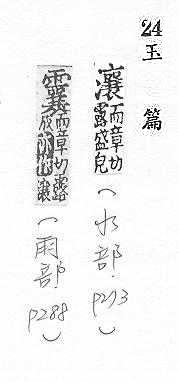 24 玉篇
瀼 而章切 露盛皃 （水部 P273）
靀 而章切 露 瀼 （雨部 P288）